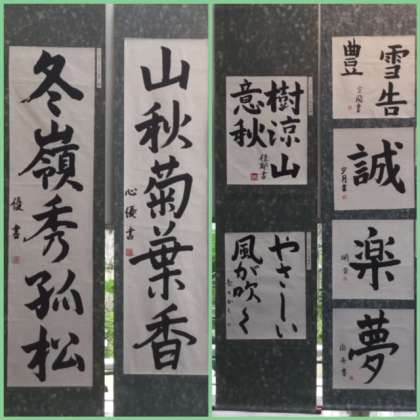 冬嶺秀孤松
山秋菊葉香
心優書
樹涼山
意秋
やさしい
風が吹く
雪告
豊
誠
夕月書
楽
夢